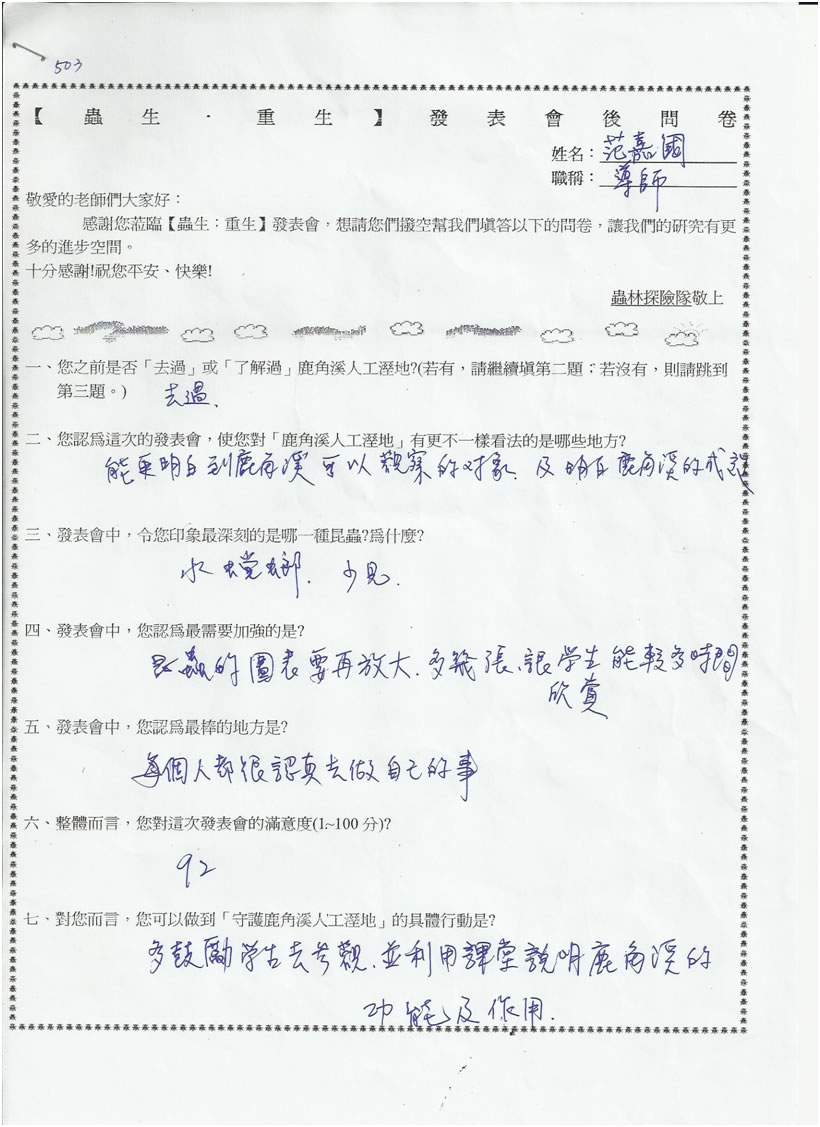 503
【蟲生．重生】發表會後問卷
姓名：范嘉國
職稱：導師
敬愛的老師們大家好：
感謝您蒞臨【蟲生：重生】發表會，想請您們撥空幫我們填答以下的問卷，讓我們的研究有更
多的進步空間。
十分感謝!祝您平安、快樂!
蟲林探險隊敬上
一、您之前是否「去過」或「了解過」鹿角溪人工溼地?(若有，請繼續填第二題；若沒有，則請跳到
第三題。)
去過、
二、您認為這次的發表會，使您對「鹿角溪人工溼地」有更不一樣看法的是哪些地方?
能更明白到鹿角溪可以觀察的对象、及明白鹿角溪的成
三、發表會中，令您印象最深刻的是哪一種昆蟲?為什麼?
水螳螂、少見.
四、發表會中，您認為最需要加強的是?
昆蟲的圖表要再放大、多幾張、讓學生能較多時間
欣賞
五、發表會中，您認為最棒的地方是?
每個人都很認真去做自己的事
六、整體而言，您對這次發表會的滿意度(1~100 分)?
92
七、對您而言，您可以做到「守護鹿角溪人工溼地」的具體行動是?
多鼓勵學生去參觀、並利用課堂說明鹿角溪的
功能及作用.